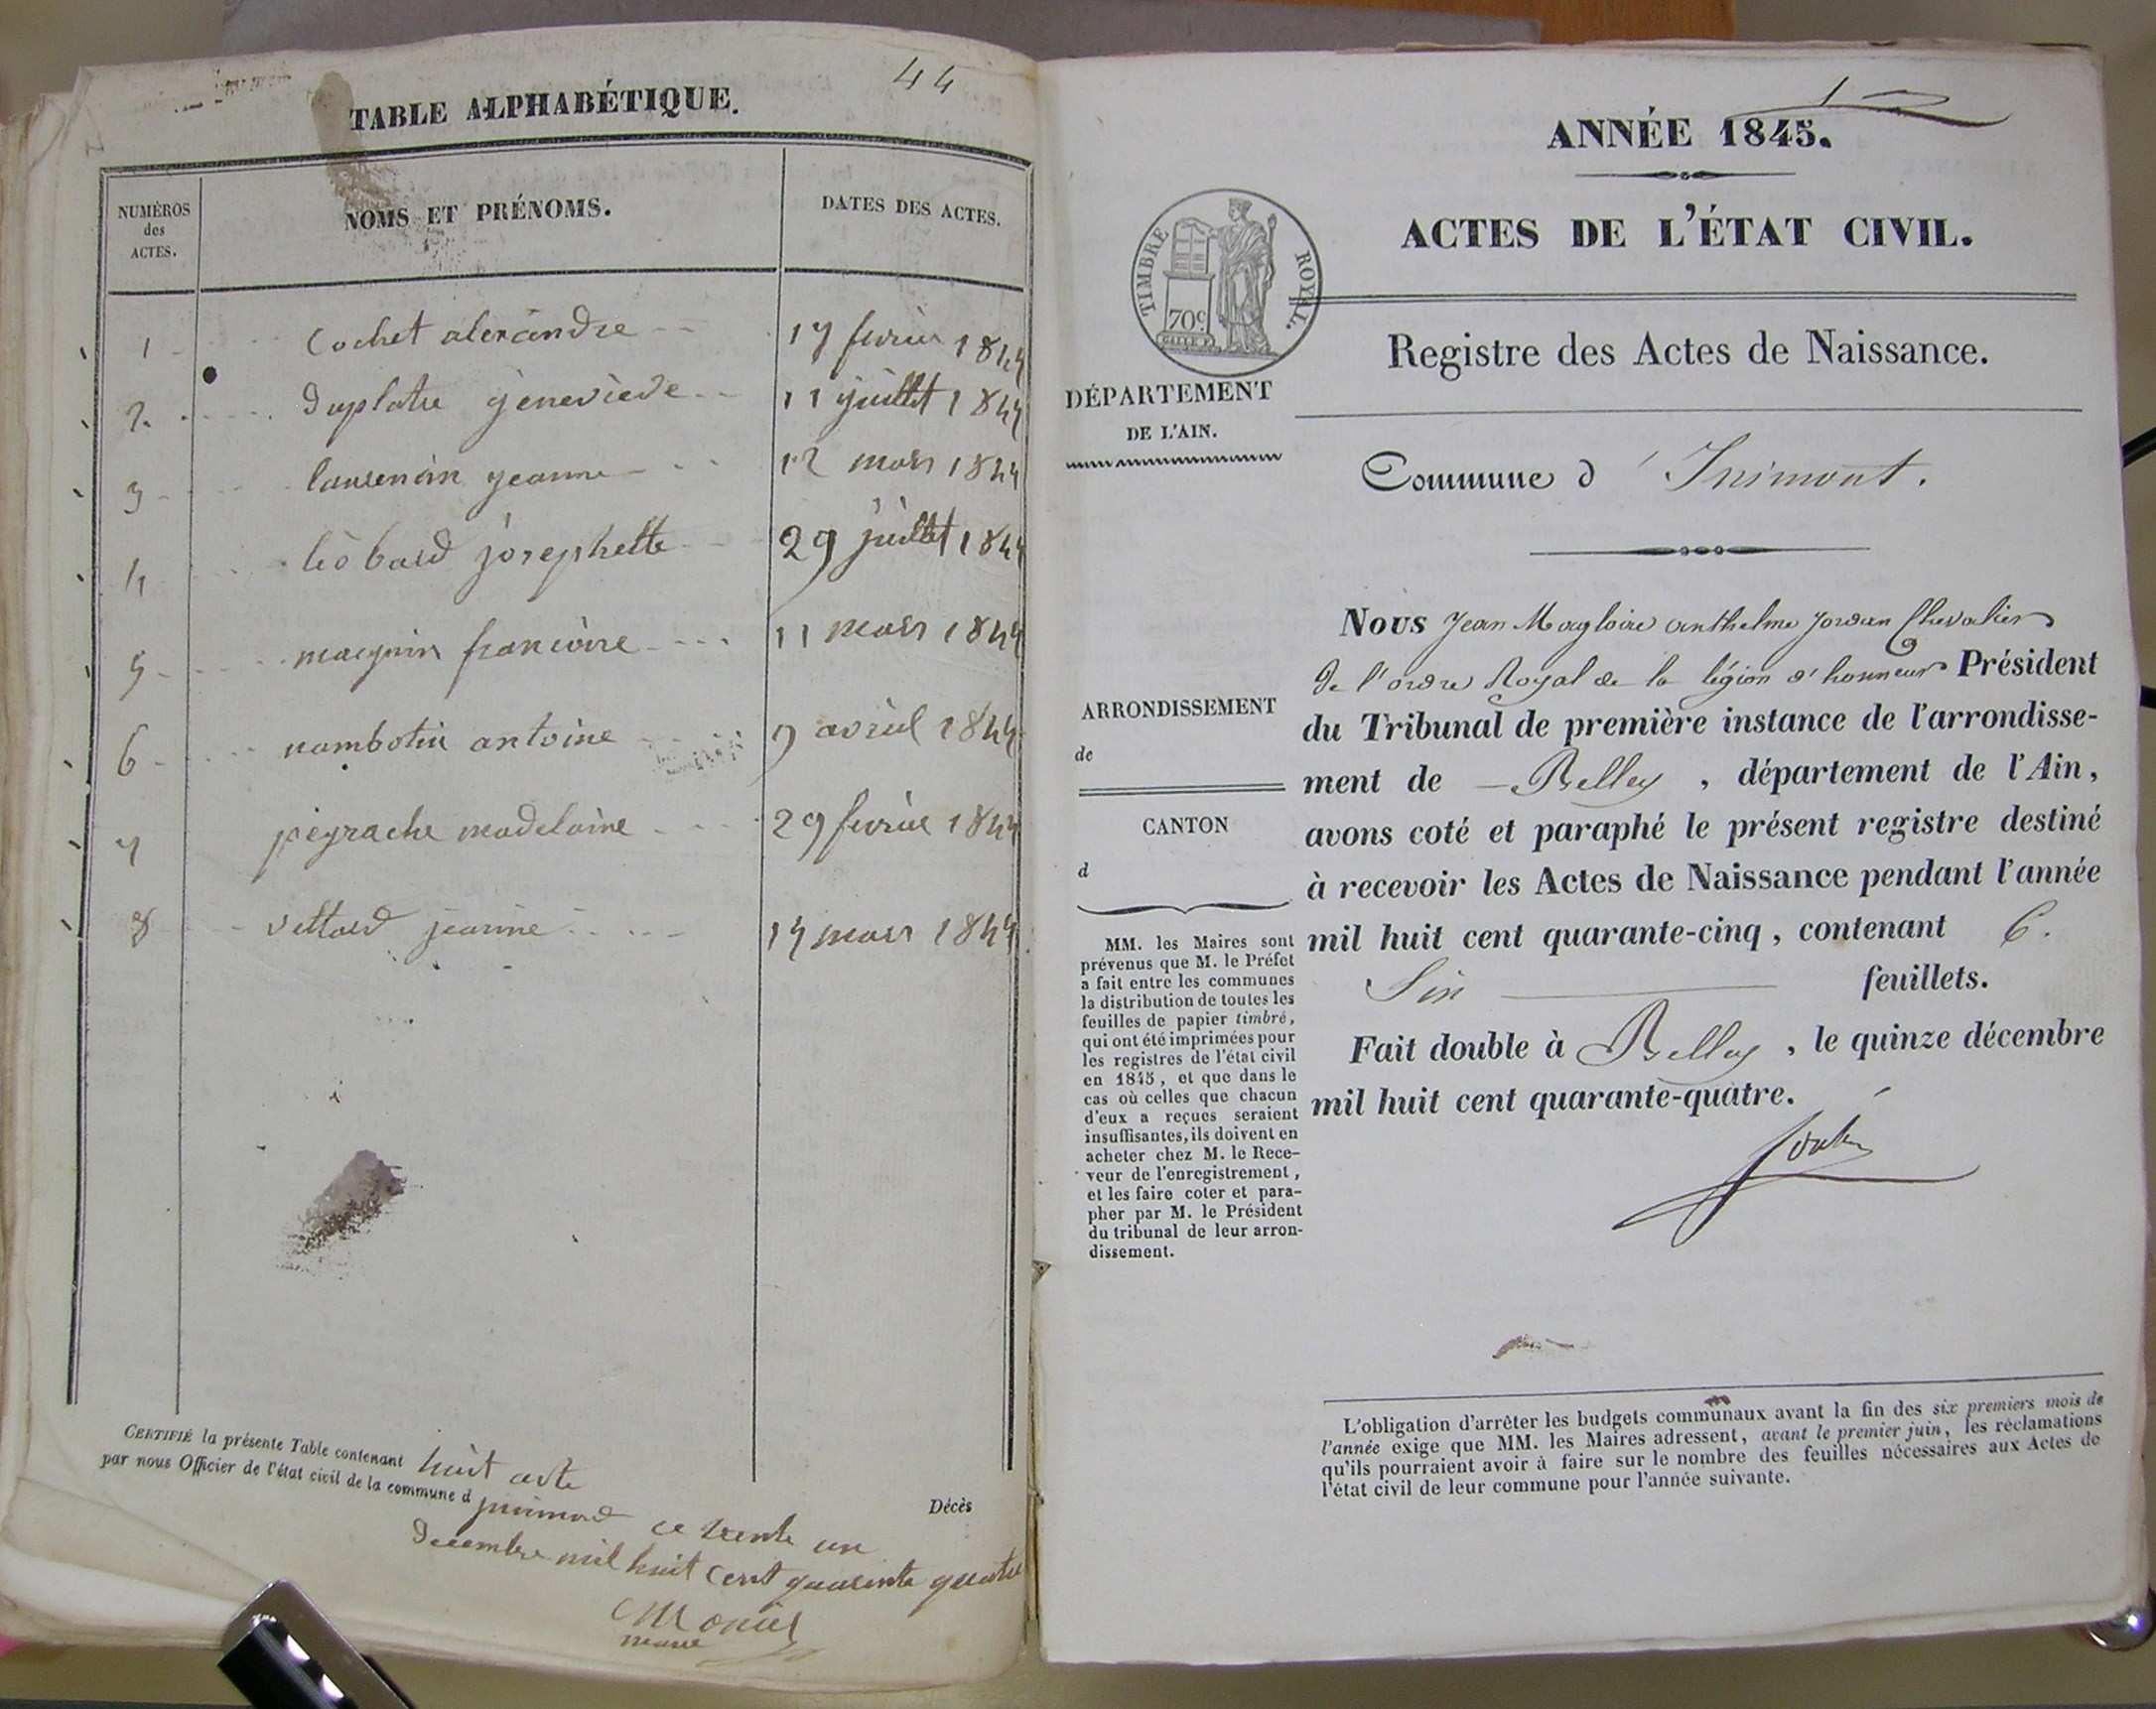 44
TABLE ALPHABÉTIQUE.
NUMÉROS des ACTES.
NOMS ET PRÉNOMS.
DATES DES ACTES.
1 Cochet alexandre 17 fevrier 1844
2. Duplatre geneviève 11 juillet 1844
3 laurencin jeanne 12 mars 1844
4 léobard josephette 29 juillet 1844
5 magnin francoise 11 mars 1844
6 nambotin antoine 9 avril 1844
7 peyrache madelaine 29 fevrier 1844
8 vettard jeanne 14 mars 1844
CERTIFIÉ la présente Table contenant huit acte
par nous Officier de l'état civil de la commune d inimond ce trente un
Decembre mil huit cent quarente quatre
Décès
maire
1
ANNÉE 1845.
ACTES DE L'ÉTAT CIVIL.
TIMBRE ROYAL.
70c
Registre des Actes de Naissance.
DÉPARTEMENT
DE L'AIN.
Commune d' Inimont.
Nous Jean Magloire anthelme Jordan Chevalier
De l'ordre Royal de la légion d'honneur Président
du Tribunal de première instance de l'arrondisse-
ment de Belley, département de l'Ain,
avons coté et paraphé le présent registre destiné
à recevoir les Actes de Naissance pendant l'année
mil huit cent quarante-cinq, contenant 6.
Six feuillets.
Fait double à Belley, le quinze décembre
mil huit cent quarante-quatre.
ARRONDISSEMENT
de
CANTON
d
MM. les Maires sont
prévenus que M. le Préfet
a fait entre les communes
la distribution de toutes les
feuilles de papier timbré,
qui ont été imprimées pour
les registres de l'état civil
en 1845, et que dans le
cas où celles que chacun
d'eux a reçues seraient
insuffisantes, ils doivent en
acheter chez M. le Rece-
veur de l'enregistrement,
et les faire coter et para-
pher par M. le Président
du tribunal de leur arron-
dissement.
L'obligation d'arrêter les budgets communaux avant la fin des six premiers mois de
l'année exige que MM. les Maires adressent, avant le premier juin, les réclamations
qu'ils pourraient avoir à faire sur le nombre des feuilles nécessaires aux Actes de
l'état civil de leur commune pour l'année suivante.